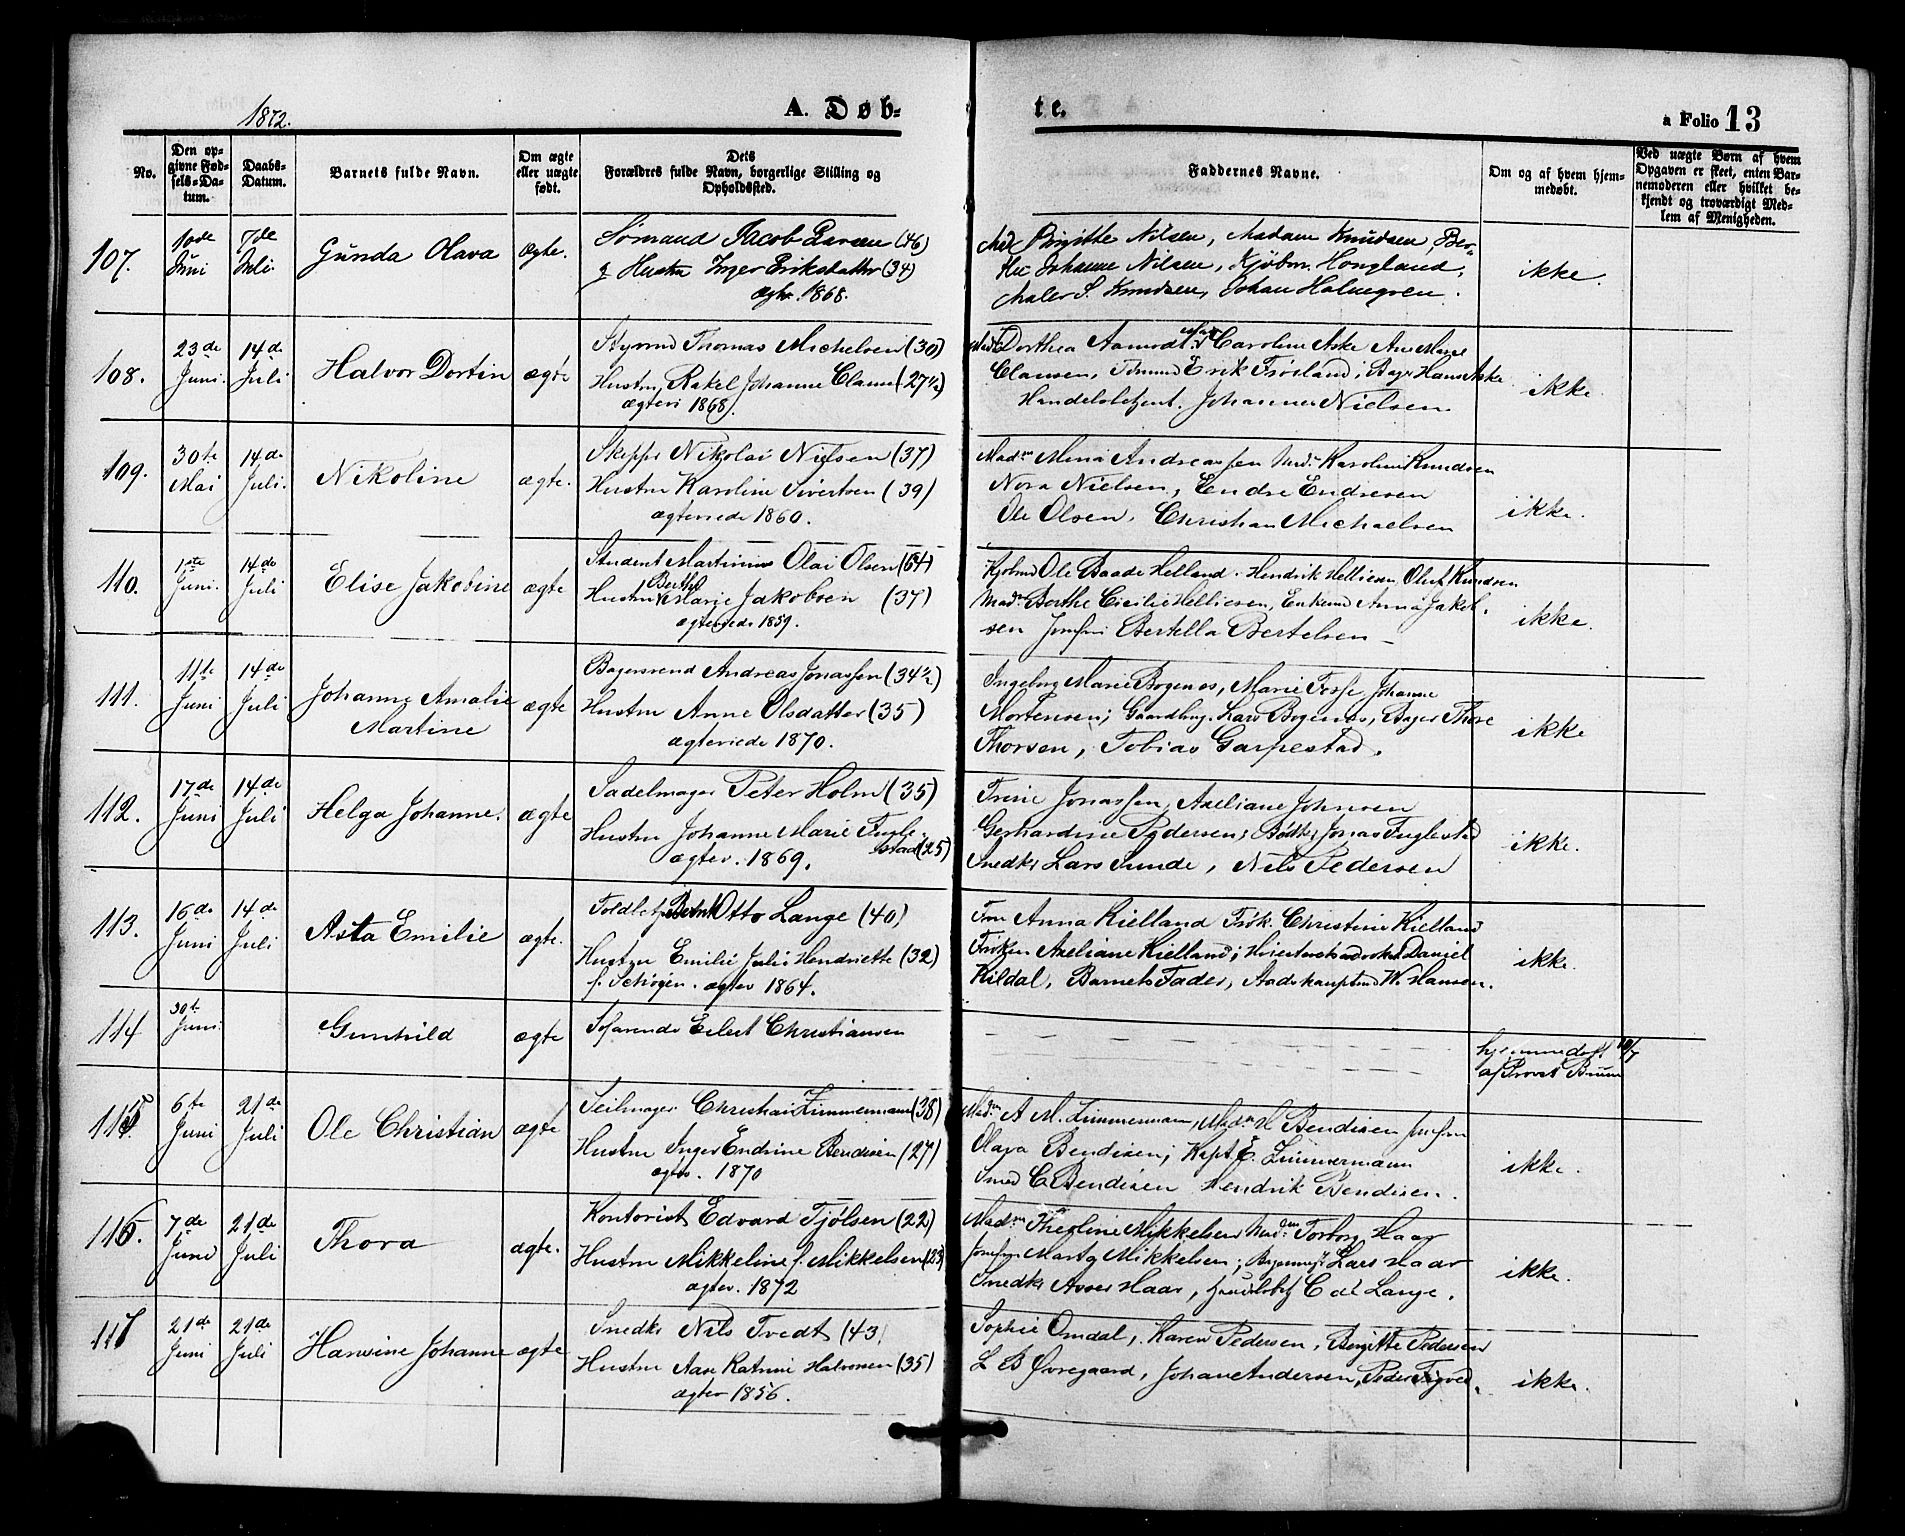 1872.
A. Døb-
te.
a Folio 13
No.
Den op-
givne Fød-
sels-Da-
tum.
Daabs-
Datum.
Barnets fulde Navn.
Om ægte
eller uægte
født.
Dets
Forældres fulde Navn, borgerlige Stilling og
Opholdssted.
Faddernes Navne.
Om og af hvem hjem-
medøbt.
Ved uægte Børn af hvem
Opgaven er skeet, enten Bar-
nemoderen eller hvilket be-
kjendt og troværdigt Med-
lem af Menigheden.
107.
10de
Juni
7de
Juli.
Gunda Olava
ægte.
Sømand Jacob Larsen (46)
Hustru Inger Eriksdatter (34)
ægtv. 1868.
Birgitte Nilsen, Madam Knudsen, Ber-
the Johanne Nilsen, Kjøbm. Hongland,
Maler S. Knudsen, Johan Holmegren.
ikke.
108.
23de
Juni.
14de
Juli
Halvor Dortin
ægte
Styrmd Thomas Michelsen (30)
Hustru Rakel Johanne Clausen (27½)
ægtevi 1868.
Mad. Dorthea Aamodt. Mad. Caroline Aske Ane Marie
Clausen, Sømand Erik Frøsland, Bager Hans Aske
Handelsbetjent. Johannes Nielsen
ikke.
109.
30te
Mai
14de
Juli.
Nikoline
ægte.
Skippr Nikolai Nielsen (37)
Hustru Karoline Sivertsen (39)
ægteviede 1860.
Madm Mina Andreassen Mad. Karoline Knudsen
Nora Nielsen, Endre Endresen
Ole Olsen, Christian Michaelsen
ikke.
110.
1ste
Juni.
14de
Juli
Elise Jakobine
ægte
Student Martinius Olai Olsen (64)
Hustru Berthe Marie Jakobsen (37)
ægteviede 1859.
Kjøbmd Ole Baade Helland. Hendrik Helliesen, Oluf Knudsen
Madm Berthe Cicilie Helliesen, Enkemd Anna Jakob-
sen Jomfru Bertella Bertelsen
ikke.
111.
11te
Juni
14de
Juli
Johanne Amalie
Martine
ægte
Bagersvend Andreas Jonassen (34½)
Hustru Anne Olsdatter (35)
ægteviede 1870.
Ingeborg Marie Bogenes, Marie Fosse, Johanne
Mortensen; Gaardbrug. Lars Bogenes, Bager Thore
Thorsen, Tobias Garpestad.
ikke
112.
17de
Juni
14de
Juli
Helga Johanne.
ægte
Sadelmager Peter Holm (35)
Hustru Johanne Marie Fugle-
stad (25)
ægtev. 1869.
Trine Jonassen, Axeliane Johnsen
Gerhardine Pedersen; Bødkr Jonas Fuglestad
Snedkr Lars Sunde, Nils Pedersen
ikke.
113.
16de
Juni
14de
Juli
Asta Emilie
ægte.
Toldbetjent Bernt Otto Lange (40)
Hustru Emilie Julie Henriette (32)
f. Schøgen. ægtev 1864.
Fru Anna Kielland Frøk. Christine Kielland
Frøken Axeliane Kielland; Daniel
Kildal, Barnets Fader, W. Hansen.
ikke.
114
30te
Juni.
Gunhild
ægte
Søfarende Eilert Christiansen
hjemmedøbt 10/7
af Provst Bruun
115
6te
Juni
21de
Juli
Ole Christian
ægte
Seilmager Christian Zimmermann (38)
Hustru Inger Endrine Bendixen (27)
ægtv. 1870
Madm A M. Zimmermann, Madm H Bendixen Jomfru
Olava Bendixen; Kapt. E. Zimmermann
Smed C. Bendixen Hendrik Bendixen.
ikke.
116.
7de
Juni
21de
Juli
Thora
ægte.
Kontorist Edvard Tjølsen (22)
Hustru Mikkeline f. Mikkelsen (23)
ægtev. 1872
Madm Theoline Mikkelsen Mad. Torborg Haar
Jomfru Marta Mikkelsen; Lars Haar
Snedkr Asser Haar, Handelsbetj C de Lange.
ikke.
117
21de
Juni
21de
Juli
Hansine Johanne
ægte
Snedkr Nils Tvedt (43)
Hustru Ane Katrine Halvorsen (35)
ægtev 1856.
Sophie Omdal, Karen Pedersen, Bergitte Pedersen
L B Øvregaard, Johan Andersen, Peder Tigved.
ikke.